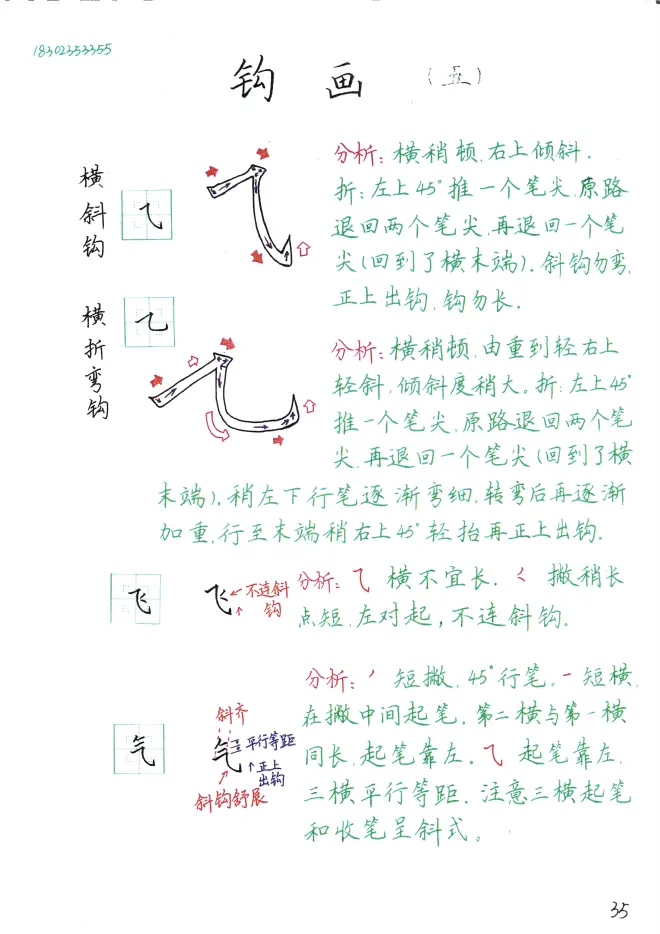 18302353355
钩 画 (五)
横斜钩
⺄
分析:横稍顿,右上倾斜.
折:左上45°推一个笔尖,原路
退回两个笔尖,再退回一个笔
尖(回到了横末端).斜钩勿弯,
正上出钩,钩勿长.
横折弯钩
乙
分析:横稍顿,由重到轻右上
轻斜,倾斜度稍大。折:左上45°
推一个笔尖,原路退回两个笔
尖,再退回一个笔尖(回到了横
末端).稍左下行笔逐渐弯细,转弯后再逐渐
加重,行至末端稍右上45°轻抬再正上出钩.
飞
飞
不连斜
钩
分析:⺄横不宜长.く撇稍长
点短,左对起,不连斜钩.
气
斜齐
气
平行等距
正上
出钩
斜钩舒展
分析:丿短撇,45°行笔,一短横,
在撇中间起笔,第二横与第一横
同长,起笔靠左.⺄起笔靠左,
三横平行等距.注意三横起笔
和收笔呈斜式。
35